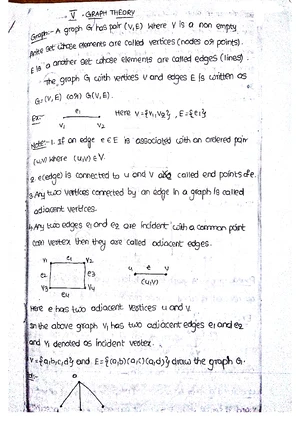 V - GRAPH THEORY
Graph:- A graph G has pair (V,E) where V is a non empty
finite set whose elements are called vertices (nodes or points).
E is a another set whose elements are called edges (lines)
The graph G with vertices V and edges E is written as
G=(V,E) (or) G(V,E).
Ex:- e1 Here V={v1,v2} , E={e1}
v1 v2
Note:- 1. If an edge e∈E is associated with an ordered pair
(u,v) where (u,v)∈V.
2. e(edge) is connected to u and v are called end points of e.
3. Any two vertices connected by an edge in a graph is called
adjacent vertices.
4. Any two edges e1 and e2 are incident with a common point
(or) vertex then they are called adjacent edges.
v1 e1 v2
e2 e3 u e v
v3 v4 (u,v)
e4
Here e has two adjacent vertices u and v.
In the above graph v1 has two adjacent edges e1 and e2
and v1 denoted as incident vertex.
V={a,b,c,d} and E={(a,b)(a,c)(a,d)} draw the graph G.
a